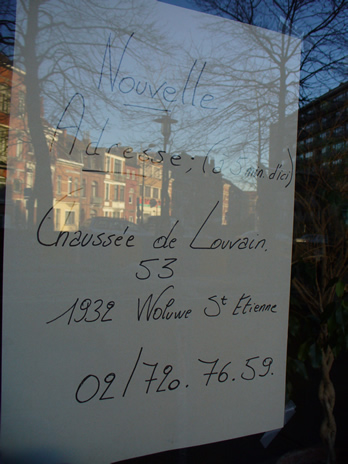 Nouvelle
Adresse; ( min. d'ici)
Chaussée de Louvain.
53
1932 Woluwe St Etienne
02/720.76.59.